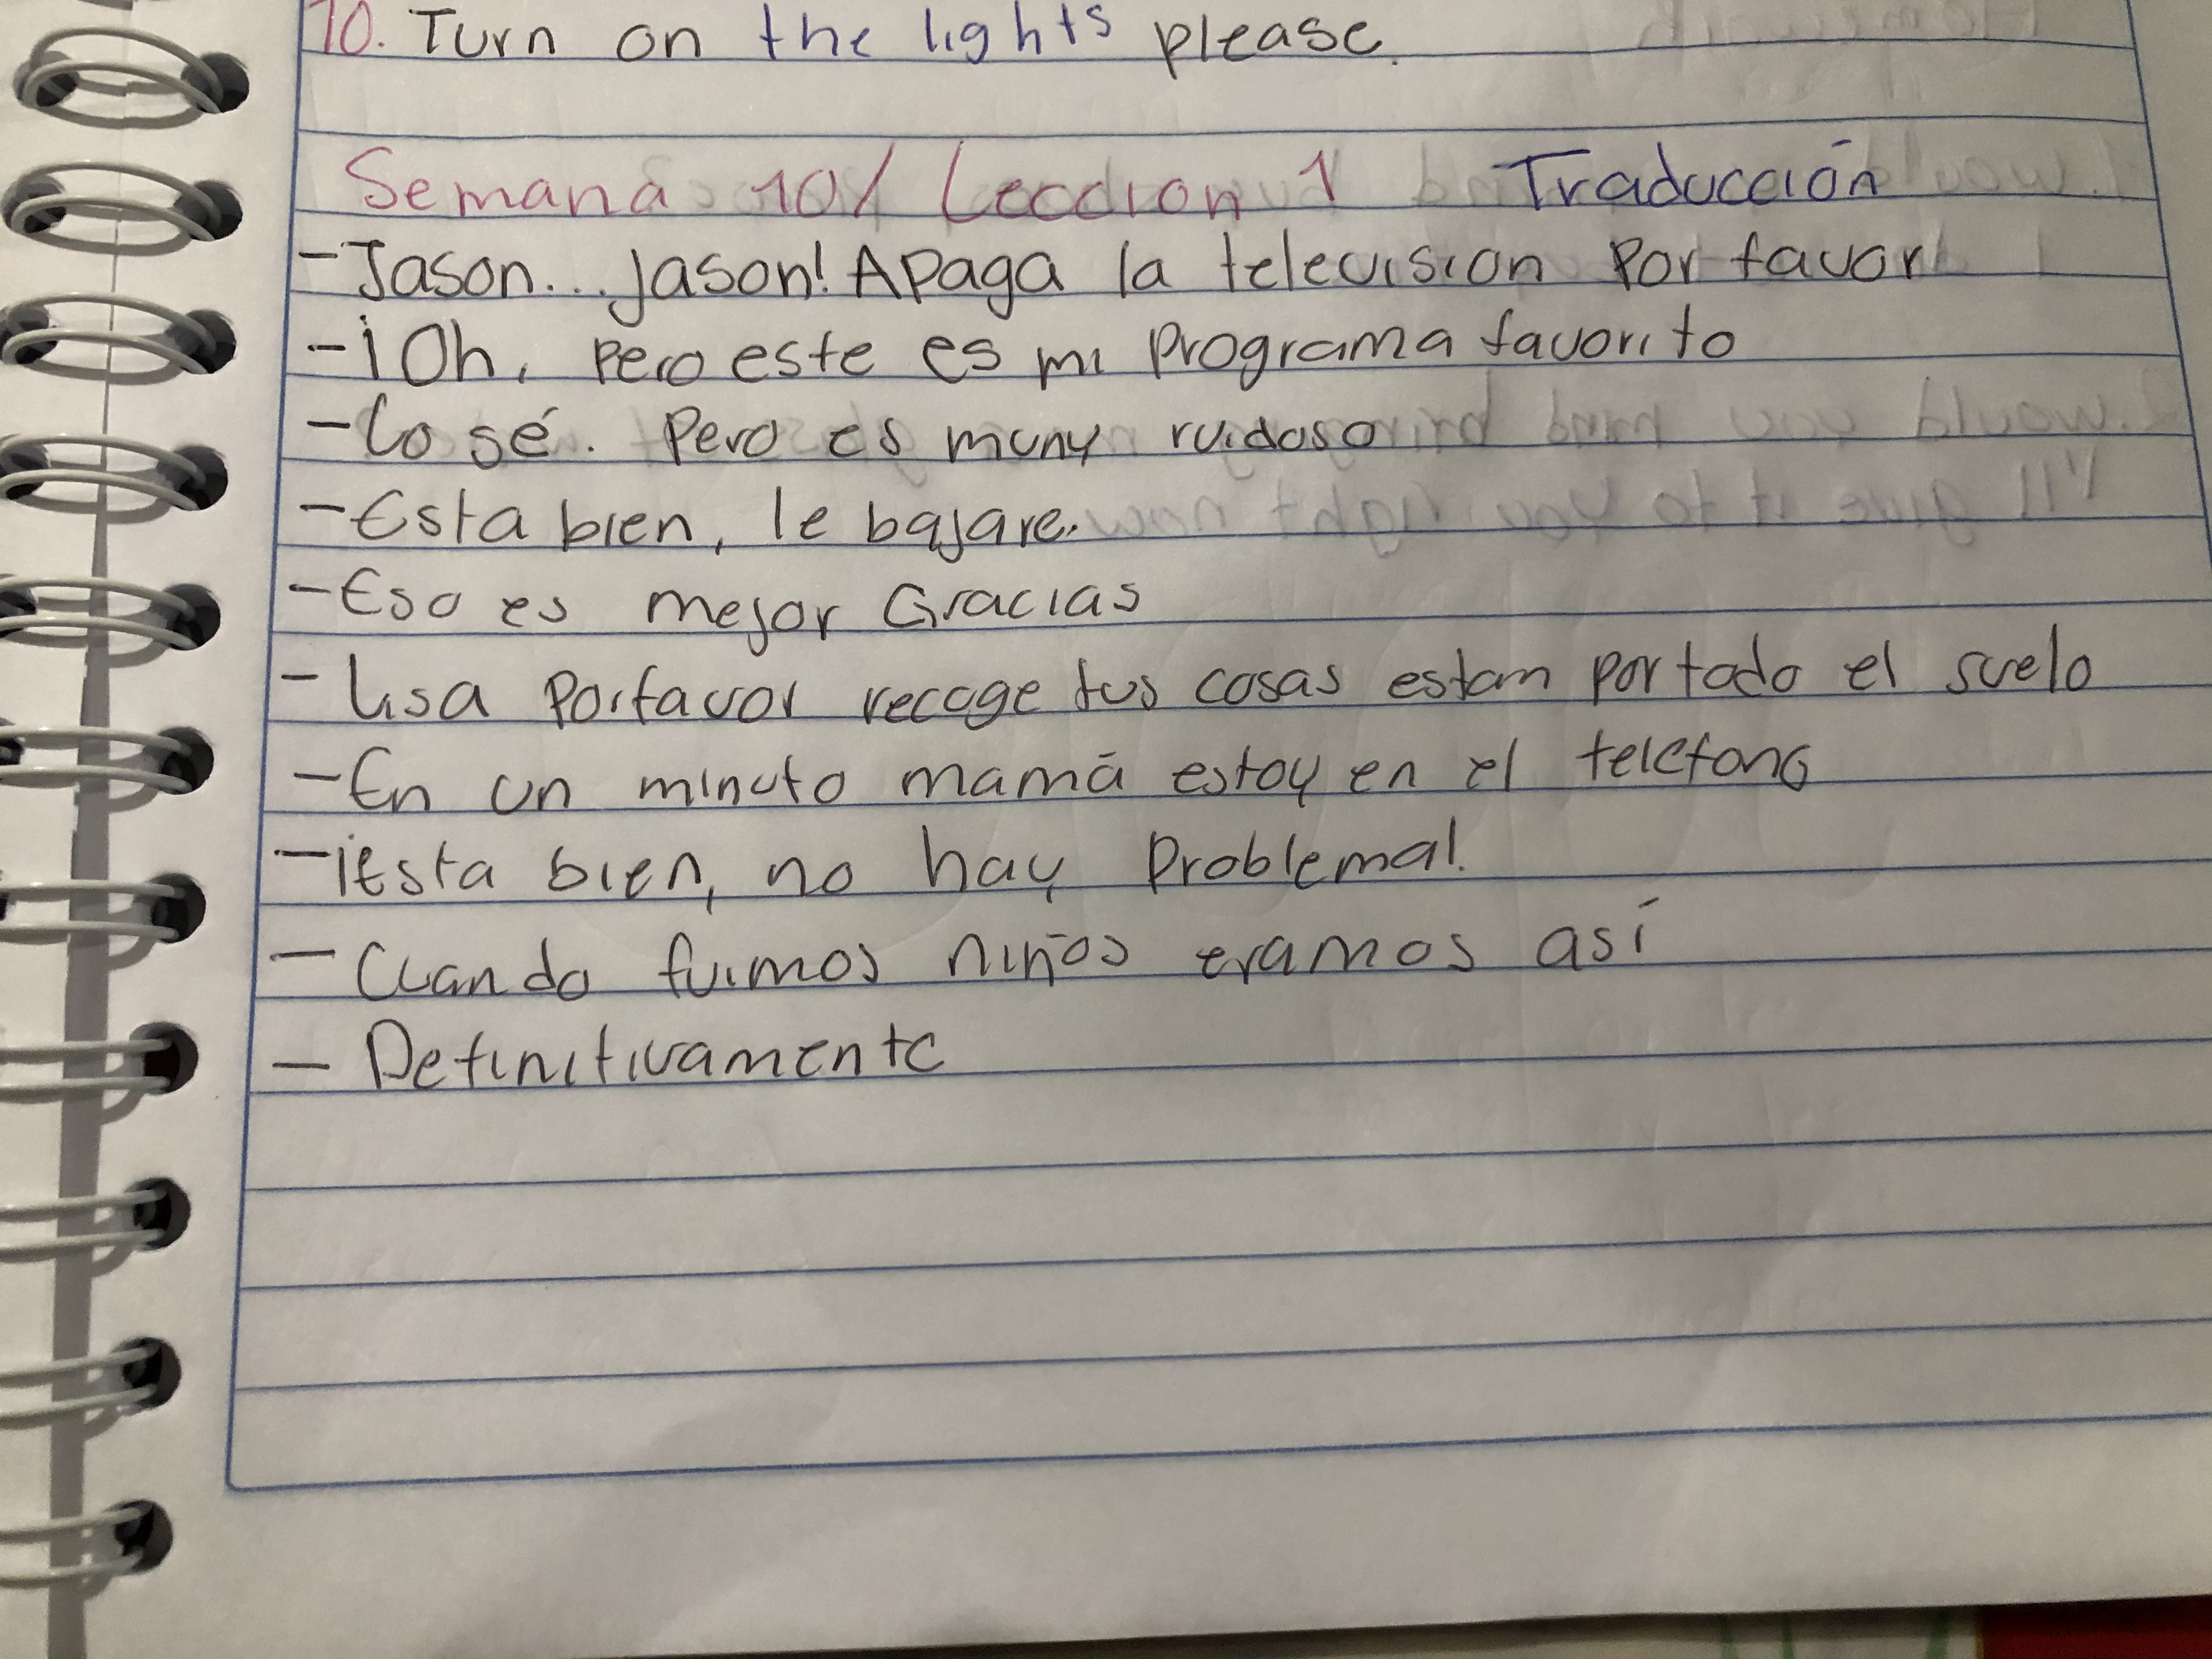 10. Turn on the lights please.
Semana 10/ Leccion 1 Traducción
- Jason... jason! Apaga la television Por favor
- ¡Oh, pero este es mi Programa favorito
- Lo sé. Pero es muny ruidoso
- Esta bien, le bajare.
- Eso es mejor Gracias
- Lisa Porfavor recoge tus cosas estan por todo el suelo
- En un minuto mamá estoy en el telefono
- ¡Esta bien, no hay Problema!
- Cuando fuimos niños eramos así
- Definitivamente